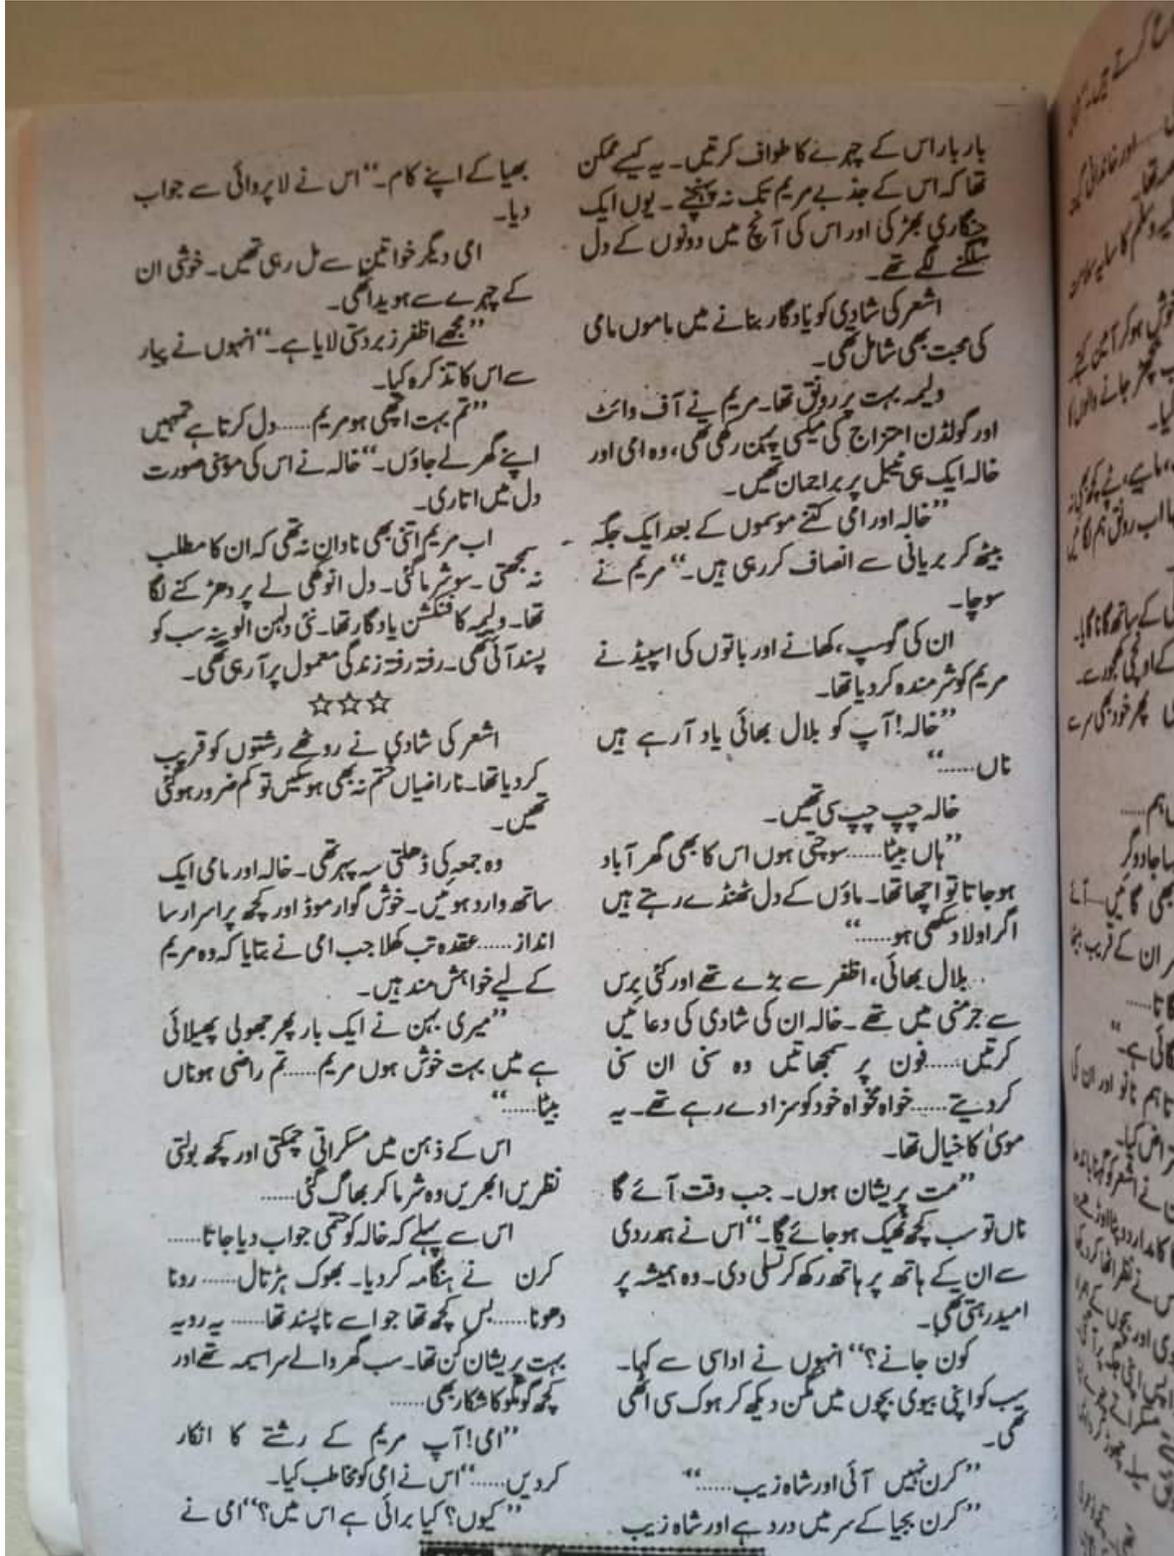 بار بار اس کے چہرے کا طواف کرتیں۔ یہ کیسے ممکن
تھا کہ اس کے جذبے مریم تک نہ پہنچتے۔ یوں ایک
چنگاری بھڑکی اور اس کی آنچ میں دونوں کے دل
سلگنے لگے تھے۔
اشعر کی شادی کو یادگار بنانے میں ماموں مامی
کی محبت بھی شامل تھی۔
ولیمہ بہت پر رونق تھا۔ مریم نے آف وائٹ
اور گولڈن امتزاج کی میکسی پہن رکھی تھی، وہ امی اور
خالہ ایک ہی ٹیبل پر براجمان تھیں۔
”خالہ اور امی کتنے موسموں کے بعد ایک جگہ
بیٹھ کر بریانی سے انصاف کر رہی ہیں۔“ مریم نے
سوچا۔
ان کی گوسپ، کھانے اور باتوں کی اسپیڈ نے
مریم کو شرمندہ کر دیا تھا۔
”خالہ! آپ کو بلال بھائی یاد آرہے ہیں
ناں......“
خالہ چپ چپ سی تھیں۔
”ہاں بیٹا...... سوچتی ہوں اس کا بھی گھر آباد
ہو جاتا تو اچھا تھا۔ ماؤں کے دل ٹھنڈے رہتے ہیں
اگر اولاد سکھی ہو......“
بلال بھائی، اظفر سے بڑے تھے اور کئی برس
سے جرمنی میں تھے۔ خالہ ان کی شادی کی دعائیں
کرتیں...... فون پر سمجھاتیں وہ سنی ان سنی
کر دیتے...... خواہ مخواہ خود کو سزا دے رہے تھے۔ یہ
موسیٰ کا خیال تھا۔
”مت پریشان ہوں۔ جب وقت آئے گا
ناں تو سب کچھ ٹھیک ہو جائے گا۔“ اس نے ہمدردی
سے ان کے ہاتھ پر ہاتھ رکھ کر تسلی دی۔ وہ ہمیشہ پر
امید رہتی تھی۔
کون جانے؟“ انہوں نے اداسی سے کہا۔
سب کو اپنی بیوی بچوں میں مگن دیکھ کر ہوک سی اٹھی
تھی۔
”کرن نہیں آئی اور شاہ زیب......“
”کرن بجیا کے سر میں درد ہے اور شاہ زیب
بھیا کے اپنے کام۔“ اس نے لاپروائی سے جواب
دیا۔
امی دیگر خواتین سے مل رہی تھیں۔ خوشی ان
کے چہرے سے ہویدا تھی۔
”مجھے اظفر زبردستی لایا ہے۔“ انہوں نے پیار
سے اس کا تذکرہ کیا۔
”تم بہت اچھی ہو مریم...... دل کرتا ہے تمہیں
اپنے گھر لے جاؤں۔“ خالہ نے اس کی موہنی صورت
دل میں اتاری۔
اب مریم اتنی بھی نادان نہ تھی کہ ان کا مطلب
نہ سمجھتی۔ سو شرما گئی۔ دل انوکھی لے پر دھڑکنے لگا
تھا۔ ولیمہ کا فنکشن یادگار تھا۔ نئی دلہن الوینہ سب کو
پسند آئی تھی۔ رفتہ رفتہ زندگی معمول پر آ رہی تھی۔
☆☆☆
اشعر کی شادی نے روٹھے رشتوں کو قریب
کر دیا تھا۔ ناراضیاں ختم نہ بھی ہو سکیں تو کم ضرور ہو گئی
تھیں۔
وہ جمعہ کی ڈھلتی سہ پہر تھی۔ خالہ اور مامی ایک
ساتھ وارد ہوئیں۔ خوش گوار موڈ اور کچھ پراسرار سا
انداز...... عقدہ تب کھلا جب امی نے بتایا کہ وہ مریم
کے لیے خواہش مند ہیں۔
”میری بہن نے ایک بار پھر جھولی پھیلائی
ہے میں بہت خوش ہوں مریم...... تم راضی ہو ناں
بیٹا......“
اس کے ذہن میں مسکراتی چمکتی اور کچھ بولتی
نظریں ابھریں وہ شرما کر بھاگ گئی......
اس سے پہلے کہ خالہ کو حتمی جواب دیا جاتا......
کرن نے ہنگامہ کر دیا۔ بھوک ہڑتال...... رونا
دھونا...... بس کچھ تھا جو اسے ناپسند تھا...... یہ رویہ
بہت پریشان کن تھا۔ سب گھر والے سراسیمہ تھے اور
کچھ گومگو کا شکار بھی......
”امی! آپ مریم کے رشتے کا انکار
کر دیں......“ اس نے امی کو مخاطب کیا۔
”کیوں؟ کیا برائی ہے اس میں؟“ امی نے